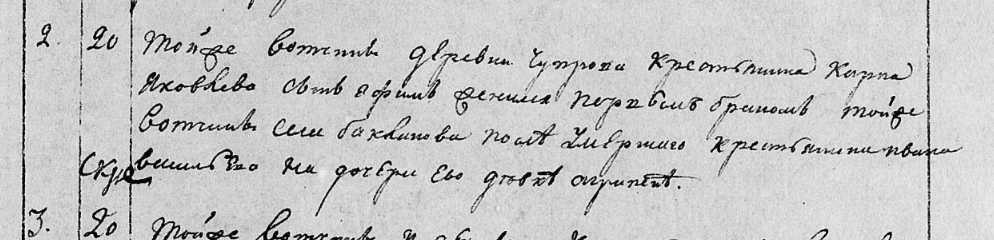 2. 20 тойже вотчины деревни Чупрова крестьянина Карпа
Яковлева сынъ Ефимъ женился первымъ бракомъ тойже
вотчины села баклanова послѣ умершаго крестьянина ивана
васильева на дочери ево девкѣ агрипенѣ.
3. 20 тойже вотчины